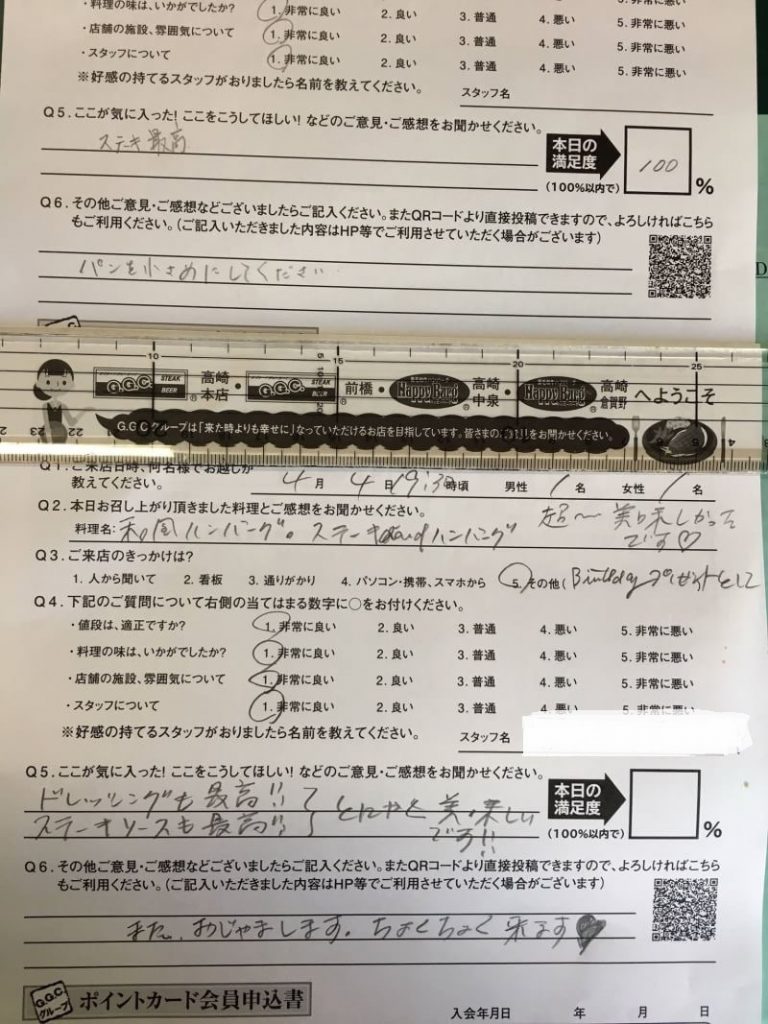 ・料理の味は、いかがでしたか? 1. 非常に良い 2. 良い 3. 普通 4. 悪い 5. 非常に悪い
・店舗の施設、雰囲気について 1. 非常に良い 2. 良い 3. 普通 4. 悪い 5. 非常に悪い
・スタッフについて 1. 非常に良い 2. 良い 3. 普通 4. 悪い 5. 非常に悪い
※好感の持てるスタッフがおりましたら名前を教えてください。 スタッフ名
Q5. ここが気に入った! ここをこうしてほしい! などのご意見・ご感想をお聞かせください。
ステキ最高
本日の
満足度
(100%以内で)
100 %
Q6. その他ご意見・ご感想などございましたらご記入ください。またQRコードより直接投稿できますので、よろしければこちら
もご利用ください。(ご記入いただきました内容はHP等でご利用させていただく場合がございます)
パンを小さめにしてください
10 15 20 25
G.G.C. STEAK BEER 高崎本店・G.G.C. STEAK BEER 前橋・Happy Bard 高崎中泉・Happy Bard 高崎倉賀野 へようこそ
G.G.Cグループは「来た時よりも幸せに」なっていただけるお店を目指しています。皆さまのお声をお聞かせください。
Q1. ご来店日時、何名様でお越しか
教えてください。 4月 4日 19:30時頃 男性 1名 女性 1名
Q2. 本日お召し上がり頂きました料理とご感想をお聞かせください。
料理名: 和風ハンバーグ。ステーキandハンバーグ
超〜美味しかった
です♡
Q3. ご来店のきっかけは?
1. 人から聞いて 2. 看板 3. 通りがかり 4. パソコン・携帯、スマホから 5. その他( Birthdayプレゼントとして
Q4. 下記のご質問について右側の当てはまる数字に○をお付けください。
・値段は、適正ですか? 1. 非常に良い 2. 良い 3. 普通 4. 悪い 5. 非常に悪い
・料理の味は、いかがでしたか? 1. 非常に良い 2. 良い 3. 普通 4. 悪い 5. 非常に悪い
・店舗の施設、雰囲気について 1. 非常に良い 2. 良い 3. 普通 4. 悪い 5. 非常に悪い
・スタッフについて 1. 非常に良い 2. 良い 3. 普通 4. 悪い 5. 非常に悪い
※好感の持てるスタッフがおりましたら名前を教えてください。 スタッフ名
Q5. ここが気に入った! ここをこうしてほしい! などのご意見・ご感想をお聞かせください。
ドレッシングも最高!!
ステーキソースも最高!!
とにかく美味しい
です!!
本日の
満足度
(100%以内で)
%
Q6. その他ご意見・ご感想などございましたらご記入ください。またQRコードより直接投稿できますので、よろしければこちら
もご利用ください。(ご記入いただきました内容はHP等でご利用させていただく場合がございます)
また、おじゃまします。ちょくちょく来ます♥
G.G.C.グループ ポイントカード会員申込書
入会年月日 年 月 日